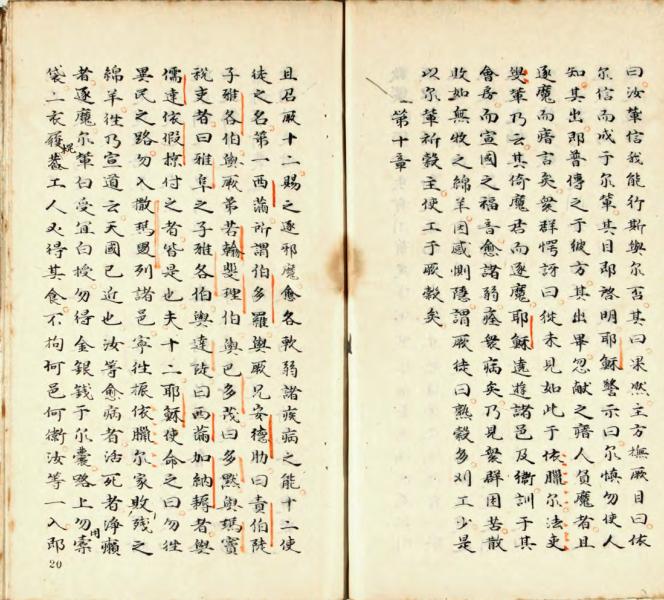 曰汝輩信我能行斯與尔否其曰果然主方撫厥目曰依
尔信而成于尔輩其目即啓明耶穌警示曰尔慎勿使人
知其出即普傳之于彼方其出畢忽獻之瘖人負魔者且
逐魔而瘖言矣衆群愕訝曰從未見如此于依臘尔法吏
輩乃云其倚魔君而逐魔耶穌遶遊諸邑及衛訓于其
會房而宣國之福音愈諸弱痊衆病矣乃見衆群困苦散
敗如無牧之綿羊因感惻隱謂厥徒曰熟穀多刈工少是
以尔輩祈穀主使工于厥穀矣
第十章
且召厥十二賜之逐邪魔愈各軟弱諸疾病之能十二使
徒之名第一西滿所謂伯多羅與厥兄安德肋曰責伯陡
子雅各伯與厥弟若翰斐理伯與巴多茂曰多默與瑪竇
稅吏者曰雅阜之子雅各伯與達陡曰西滿加納耨者與
儒達依叚掠付之者皆是也夫十二耶穌使命之曰勿徃
異民之路勿入撒瑪里列諸邑寧徃振依臘尔家敗殘之
綿羊徃乃宣道云天國已近也汝等愈病者活死者淨癩
者逐魔尔輩白受宜白授勿得金銀錢于尔囊路上勿用橐
袋二衣履梃蓋工人必得其食不拘何邑何衛汝等一入即
20